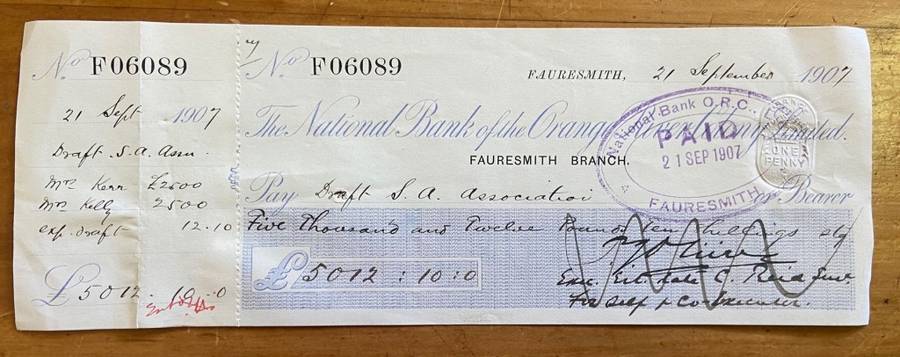 No F06089
21 Sept 1907
Draft S. A. Assn.
Mrs Kerr £2500
Mrs Kelly 2500
exp. draft 12.10
£5012.10.0
No F06089
FAURESMITH, 21 September 1907
The National Bank of the Orange River Colony Limited.
FAURESMITH BRANCH.
National Bank O.R.C.
PAID
21 SEP 1907
FAURESMITH
ONE PENNY
Pay Draft S. A. Association or Bearer
Five Thousand and Twelve Pounds ten shillings stg
£5012:10:0
Exe. Estate C. Reid Senr.
For self & co-executor.